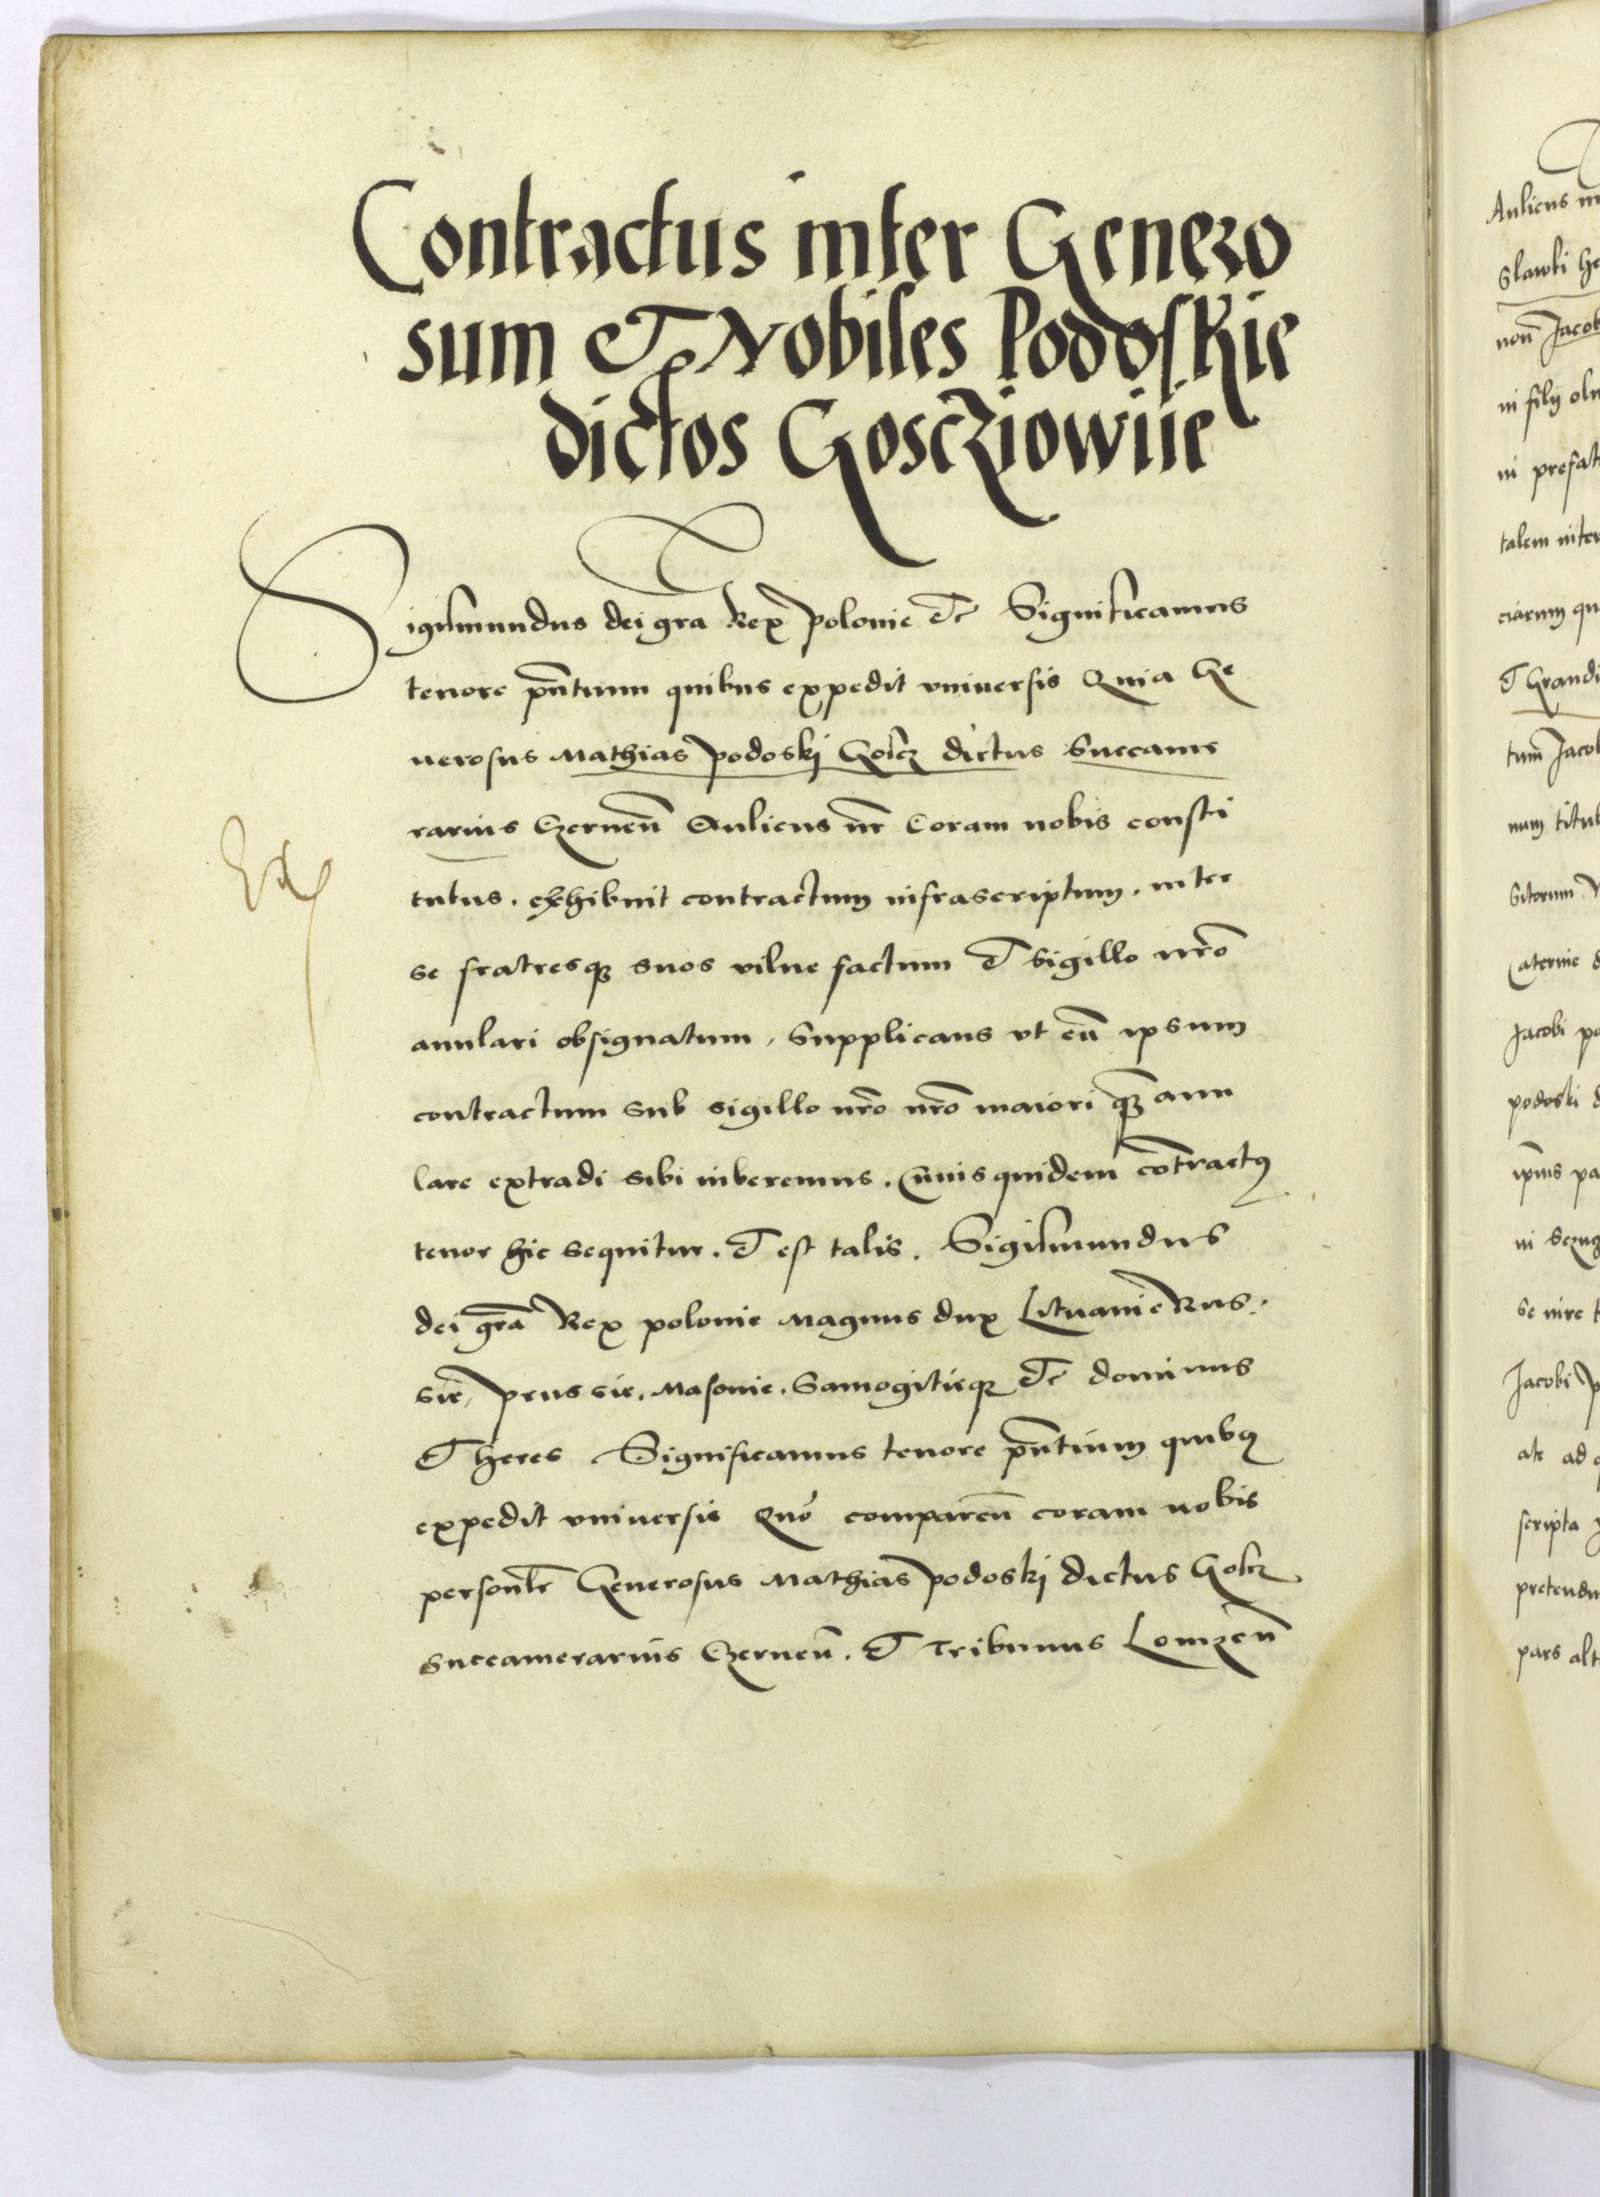 Contractus inter Genero
sum et Nobiles Podoskie
dictos Goscziowiie
Sigismundus dei gra Rex polonie etc Significamus
tenore pñtium quibus expedit vniuersis Quia Ge
nerosus Mathias podoski Golcz dictus Succame
rarius Czerneñ Aulicus nr̃ Coram nobis consti
tutus. exhibuit contractum infrascriptum. inter
se fratresq; suos vilne factum et sigillo nr̃o
annulari obsignatum, Supplicans vt eũ ipsum
contractum sub sigillo nr̃o nr̃o maiori q̃ annu
lare extradi sibi iuberemus. Cuius quidem cõtractꝰ
tenor hic sequitur. et est talis. Sigismundus
dei grã Rex polonie Magnus dux Lituanie Rus.
sie, prussie. Masouie. Samogitieq; etc dominus
et heres Significamus tenore pñtium quibꝰ
expedit vniuersis Quõ compareñ coram nobis
personlr̃ Generosus Mathias podoski dictus Golcz
Succamerarius Czerneñ. et Tribunus Lomzeñ
Ex
Aulicus
slawki
noñ Jacob
ni filij
ni prefat
talem inter
ciarum
et Grandi
tum̃ Jacob
num titul
sitorum.
Caterine
Jacobi
podoski
ipius
se iure
Jacobi
ate ad
scripta
pretendu
pars alt